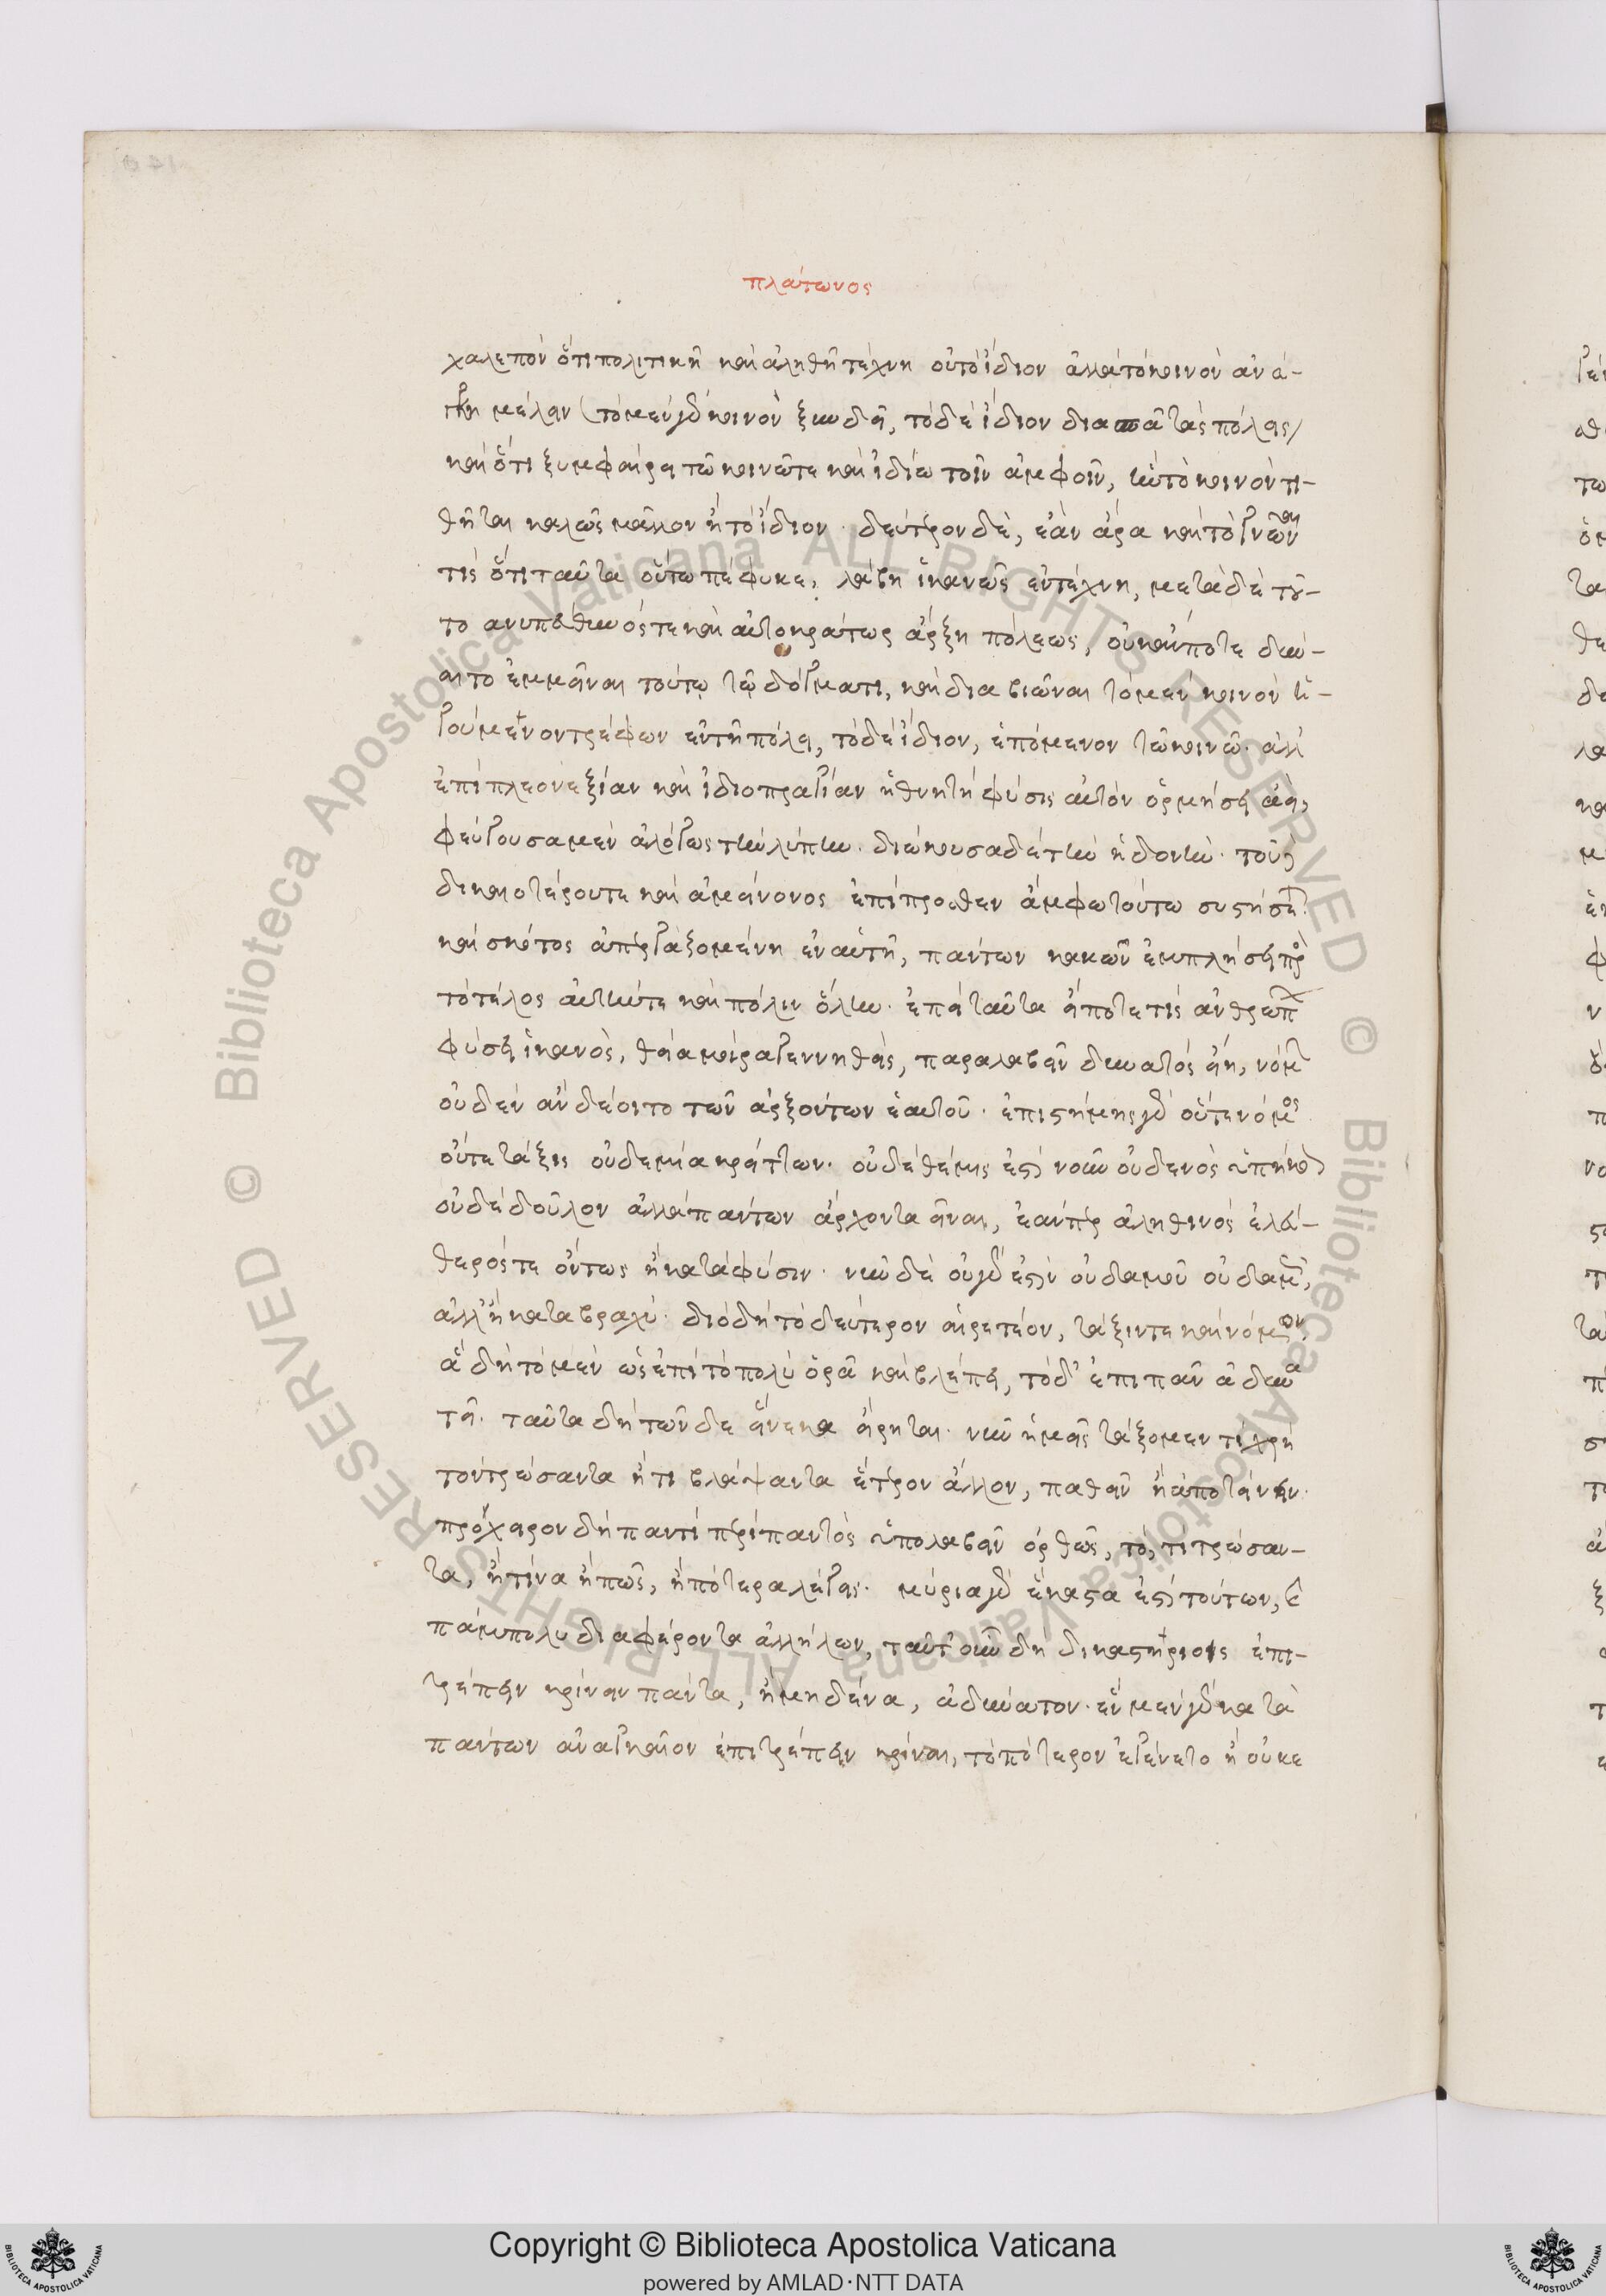 πλάτωνος
χαλεπὸν ὅτι πολιτικῇ καὶ ἀληθῇ τέχνῃ οὐ τὸ ἴδιον ἀλλὰ τὸ κοινὸν ἀνά-
γκη μέλειν (τὸ μὲν γὰρ κοινὸν ξυνδεῖ, τὸ δὲ ἴδιον διασπᾷ τὰς πόλεις/
καὶ ὅτι ξυμφαίρει τῶ κοινῶ τε καὶ ἰδίω τοῖν ἀμφοῖν, ἢν τὸ κοινὸν τι-
θῆται καλῶς μᾶλλον ἢ τὸ ἴδιον. δεύτερον δὲ, ἐὰν ἄρα καὶ τὸ γνῶναι
τις ὅτι ταῦτα οὕτω πέφυκε, λάβῃ ἱκανῶς ἐν τέχνῃ, μετὰ δὲ τοῦ-
το ἀνυπεύθυνός τε καὶ αὐτοκράτωρ ἄρξῃ πόλεως, οὐκ ἄν ποτε δύν-
αιτο ἐμμεῖναι τούτῳ τῷ δόγματι, καὶ διαβιῶναι τὸ μὲν κοινὸν ἡ-
γούμενον τρέφων ἐν τῇ πόλει, τὸ δὲ ἴδιον, ἑπόμενον τῶ κοινῶ. ἀλλ'
ἐπὶ πλεονεξίαν καὶ ἰδιοπραγίαν ἡ θνητὴ φύσις αὐτὸν ὁρμήσει ἀεὶ,
φεύγουσα μὲν ἀλόγως τὴν λύπην. διώκουσα δὲ τὴν ἡδονὴν. τοῦ
δικαιοτέρου τε καὶ ἀμείνονος ἐπίπροσθεν ἄμφω τούτω συστήσεται.
καὶ σκότος ἀπεργαζομένη ἐν αὑτῇ, πάντων κακῶν ἐμπλήσει πρὸς
τὸ τέλος αὑτήν τε καὶ πόλιν ὅλην. ἐπεὶ ταῦτα εἴ ποτέ τις ἀνθρώπων
φύσει ἱκανὸς, θείᾳ μοίρᾳ γεννηθεὶς, παραλαβεῖν δυνατὸς εἴη, νόμων
οὐδὲν ἂν δέοιτο τῶν ἀρξόντων ἑαυτοῦ. ἐπιστήμης γὰρ οὔτε νόμος
οὔτε τάξις οὐδεμία κρείττων. οὐδὲ θέμις ἐστὶ νοῦν οὐδενὸς ὑπήκοον
οὐδὲ δοῦλον ἀλλὰ πάντων ἄρχοντα εἶναι, ἐάν περ ἀληθινὸς ἐλεύ-
θερός τε ὄντως ᾖ κατὰ φύσιν. νῦν δὲ οὐ γάρ ἐστιν οὐδαμοῦ οὐδαμῶς,
ἀλλ' ἢ κατὰ βραχύ. διὸ δὴ τὸ δεύτερον αἱρετέον, τάξιν τε καὶ νόμον,
ἃ δὴ τὸ μὲν ὡς ἐπὶ τὸ πολὺ ὁρᾷ καὶ βλέπει, τὸ δ' ἐπὶ πᾶν ἀδυνα
τεῖ. ταῦτα δὴ τῶνδε εἵνεκα εἴρηται. νῦν ἡμεῖς τάξομεν τί χρὴ
τὸν τρώσαντα ἤ τι βλάψαντα ἕτερον ἄλλον, παθεῖν ἢ ἀποτείνειν.
πρόχειρον δὴ παντὶ περὶ παντὸς ὑπολαβεῖν ὀρθῶς, τὸ, τί τρώσαν-
τα, ἢ τίνα ἢ πῶς, ἢ πότερα λέγεις. μύρια γὰρ ἕκαστα ἐστὶ τούτων, καὶ
πάμπολυ διαφέροντα ἀλλήλων, ταῦτ' οὖν δὴ δικαστηρίοις ἐπι-
τρέπειν κρίνειν πάντα, ἢ μηδένα, ἀδύνατον. ἓν μὲν γὰρ κατὰ
πάντων ἀναγκαῖον ἐπιτρέπειν κρίναι, τὸ πότερον ἐγένετο ἢ οὐκ ἐ